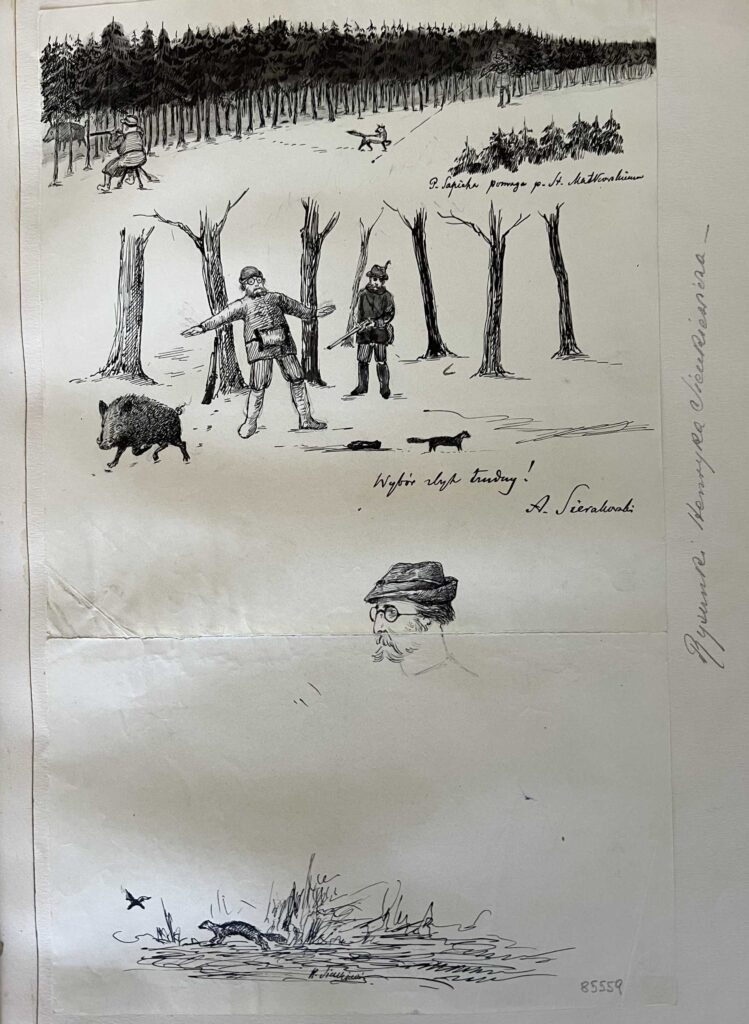 P. Sapieha pomaga p. St. Małkowskiemu
Wybór zbyt trudny!
A. Sierakowski
H. Sienkiewicz
85559
Rysunki Henryka Sienkiewicza –